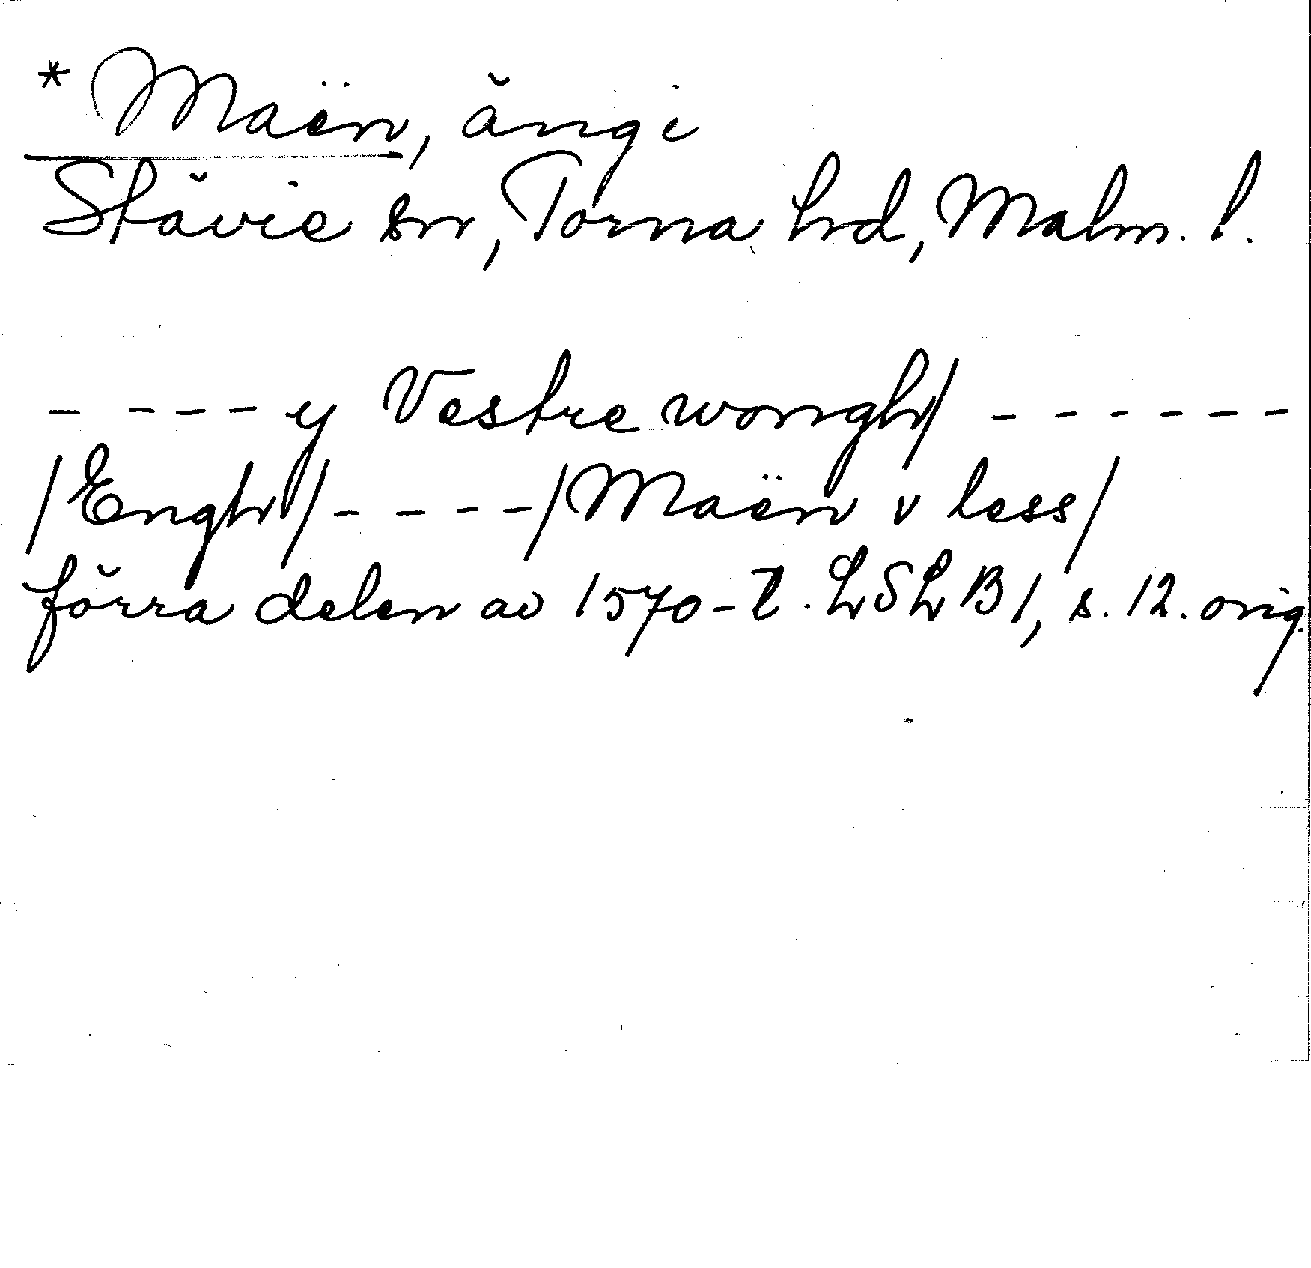 * Maën, äng i
Stävie sn, Torna hd, Malm. l.
- - - - - y Vestre wongh/ - - - - - -
/Engh/ - - - - /Maën v less/
förra delen av 1570-t. LSLB1, s. 12. orig.